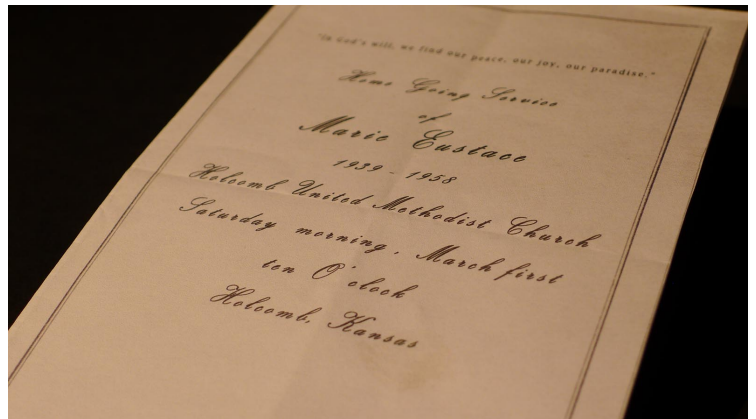 "In God's will, we find our peace, our joy, our paradise."
Home Going Service
of
Marie Eustace
1939 - 1958
Holcomb United Methodist Church
Saturday morning, March first
ten O'clock
Holcomb, Kansas